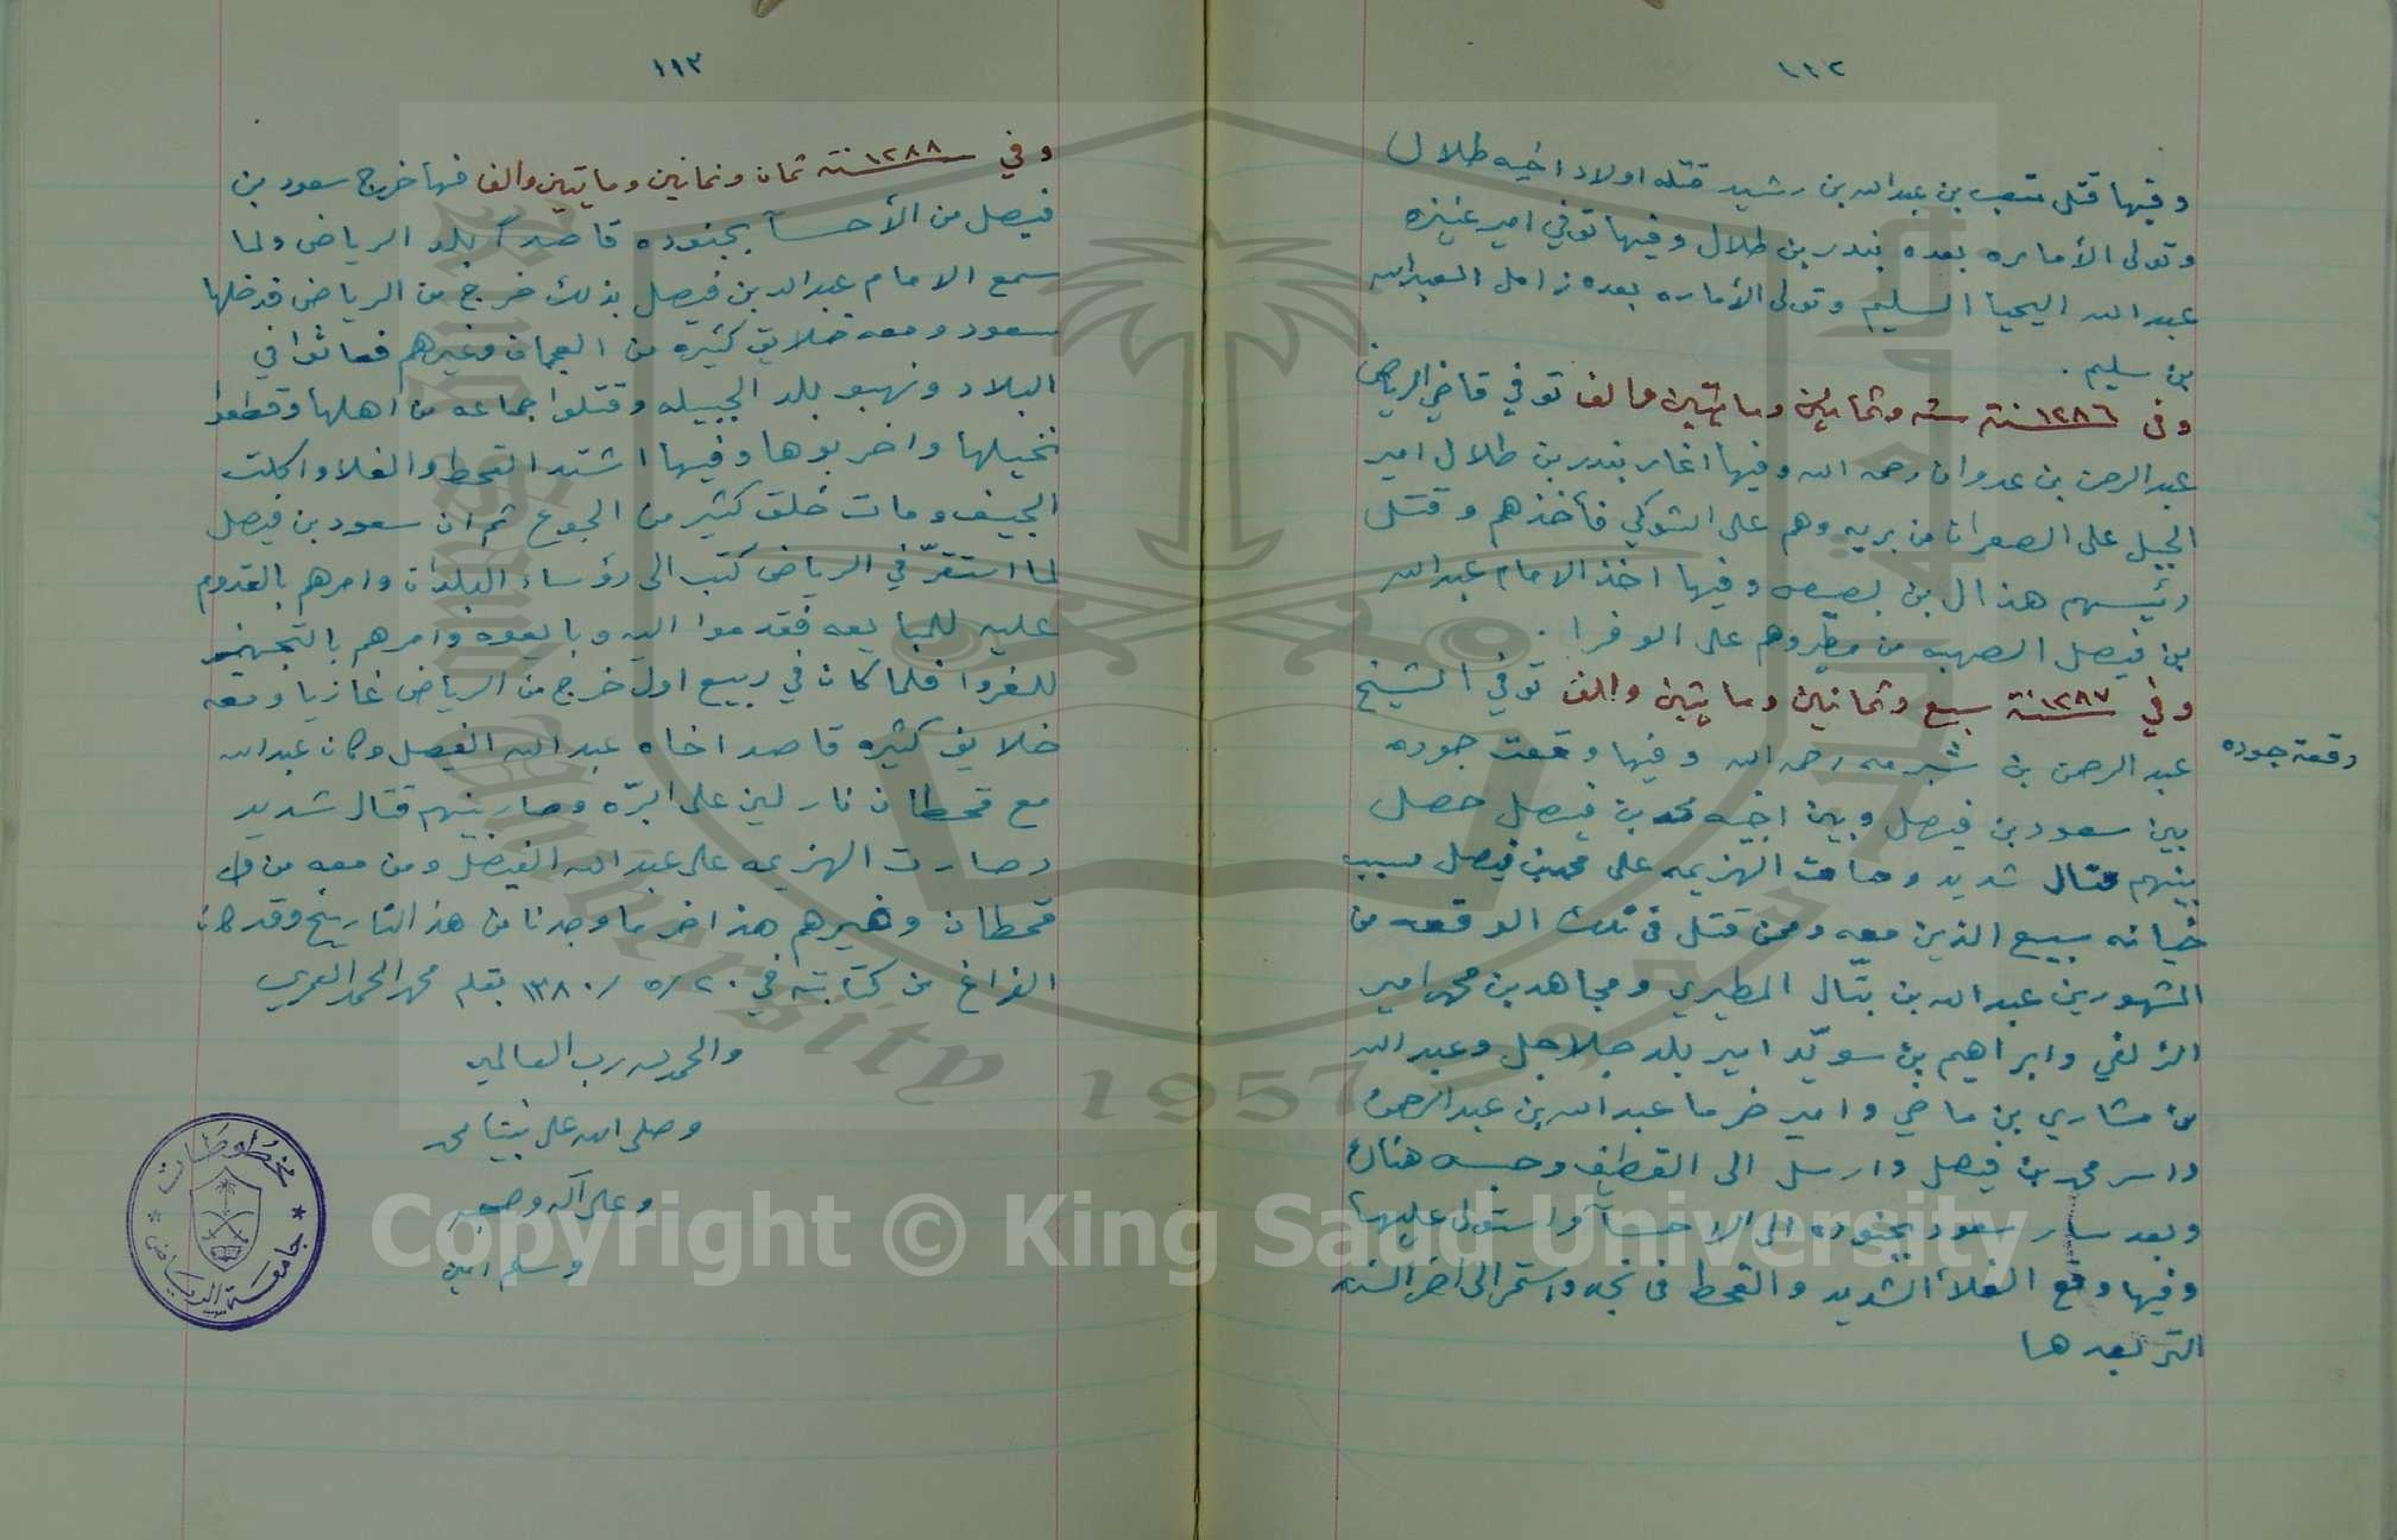 ١١٢
وفيها قتل متعب بن عبدالله بن رشيد قتله اولاد اخيه طلال
وتولى الأماره بعده بندر بن طلال وفيها توفي امير عنيزه
عبدالله اليحيا السليم وتولى الأماره بعده زامل العبدالله
بن سليم .
وفي ١٢٨٦ سنة سته وثمانين ومايتين والف توفي قاضي الرياض
عبدالرحمن بن عدوان رحمه الله وفيها اغار بندر بن طلال امير
الجبل على الصعران من بريه وهم على الشوكي فأخذهم وقتل
رئيسهم هذال بن بصيص وفيها اخذ الامام عبدالله
بن فيصل الصهبه من مطير وهم على الوفرا .
وفي ١٢٨٧ سنة سبع وثمانين ومايتين والف توفي الشيخ
عبدالرحمن بن شبرمه رحمه الله وفيها وقعت جوده
وقعة جوده
بين سعود بن فيصل وبين اخيه محمد بن فيصل حصل
بينهم قتال شديد وصارت الهزيمه على محمد بن فيصل بسبب
خيانه سبيع الذين معه وممن قتل في تلك الوقعه من
المشهورين عبدالله بن بتّال المطيري ومجاهد بن محمد امير
الزلفي وابراهيم بن سويّد امير بلد جلاجل وعبدالله
بن مشاري بن ماضي وامير ضرما عبدالله بن عبدالرحمن
واسر محمد بن فيصل وارسل الى القطيف وحبسه هناك
وبعد سار سعود بجنوده الى الاحسآ واستولى عليها
وفيها وقع الغلأ الشديد والقحط في نجد واستمر الى اخر السنه
التي بعدها
١١٣
وفي ١٢٨٨ سنة ثمان وثمانين ومايتين والف فيها خرج سعود بن
فيصل من الأحسآ بجنوده قاصداً بلد الرياض ولما
سمع الامام عبدالله بن فيصل بذلك خرج من الرياض فدخلها
سعود ومعه خلايق كثيره من العجمان وغيرهم فعاثوا في
البلاد ونهبو بلد الجبيله وقتلوا جماعه من اهلها وقطعوا
نخيلها واخربوها وفيها اشتد القحط والغلا واكلت
الجيف ومات خلق كثير من الجوع ثم ان سعود بن فيصل
لما استقرّ في الرياض كتب الى رؤساء البلدان وامرهم بالقدوم
عليه للمبايعه فقدموا اليه وبايعوه وامرهم بالتجهيز
للغزوا فلما كان في ربيع اول خرج من الرياض غازيا ومعه
خلايق كثيره قاصد اخاه عبدالله الفيصل وكان عبدالله
مع قحطان نازلين على البرّه وصار بينهم قتال شديد
وصارت الهزيمه على عبدالله الفيصل ومن معه من
قحطان وغيرهم هذا اخر ما وجدنا من هذا التاريخ وقد كان
الفراغ من كتابته في ٢٠ / ٥ / ١٣٨٠ بقلم محمد الحمد العمري
والحمد لله رب العالمين
وصلى الله على نبينا محمد
وعلى آله وصحبه
وسلم امين
مخطوطات
جامعة الرياض
Copyright © King Saud University
1957